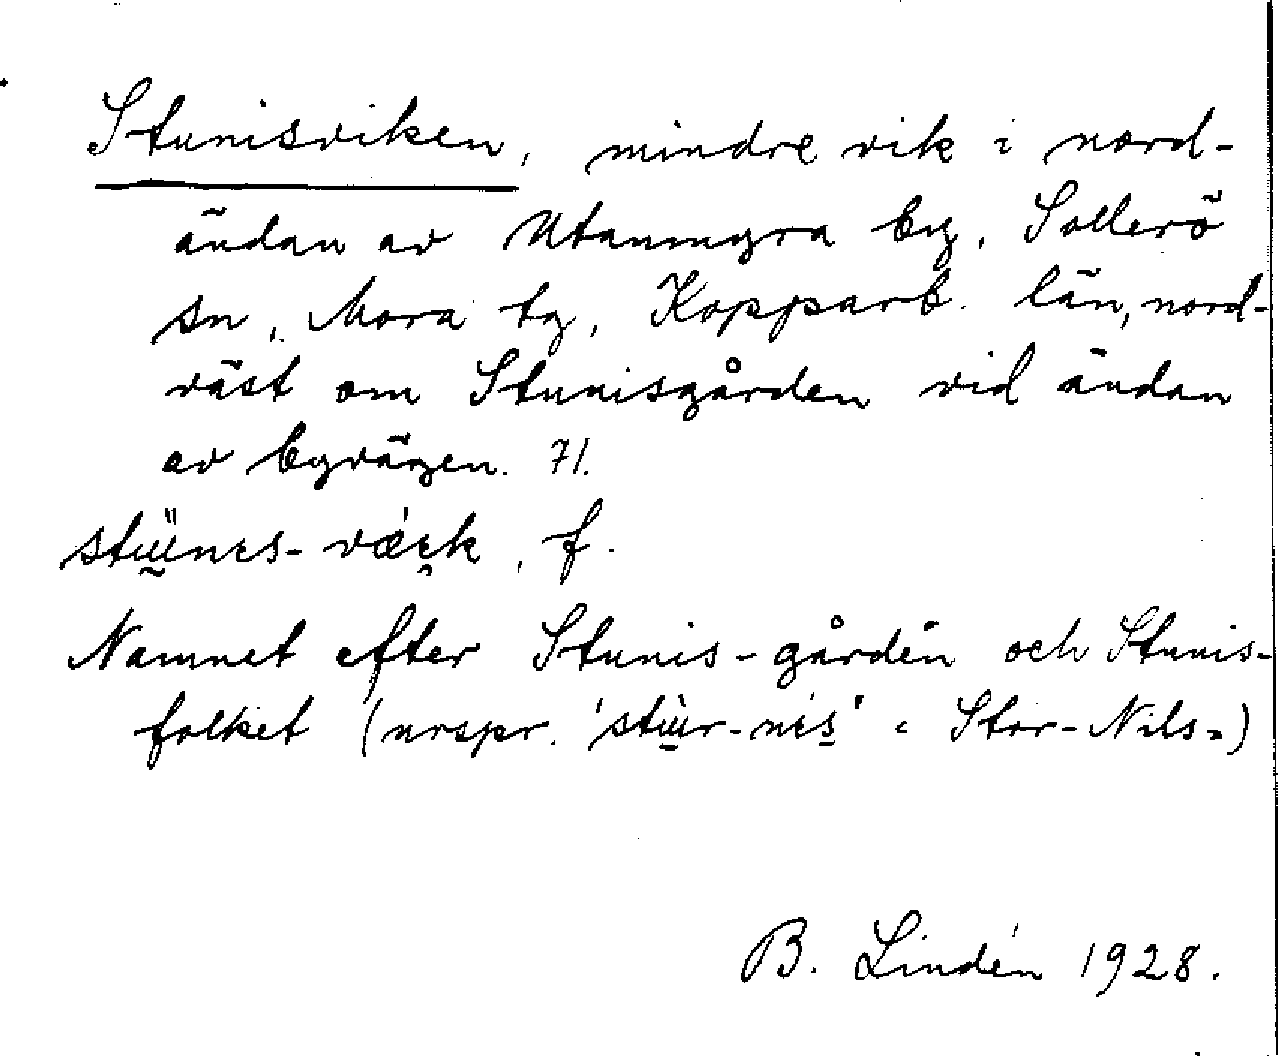 Stunisviken, mindre vik i nord-
ändan av Utanmyra by, Sollerö
sn, Mora tg, Kopparb. län, nord-
väst om Stunisgården vid ändan
av byvägen. 71.
f.
Namnet efter Stunis-gården och Stunis-
folket (urspr. = Stor-Nils-)
B. Lindén 1928.